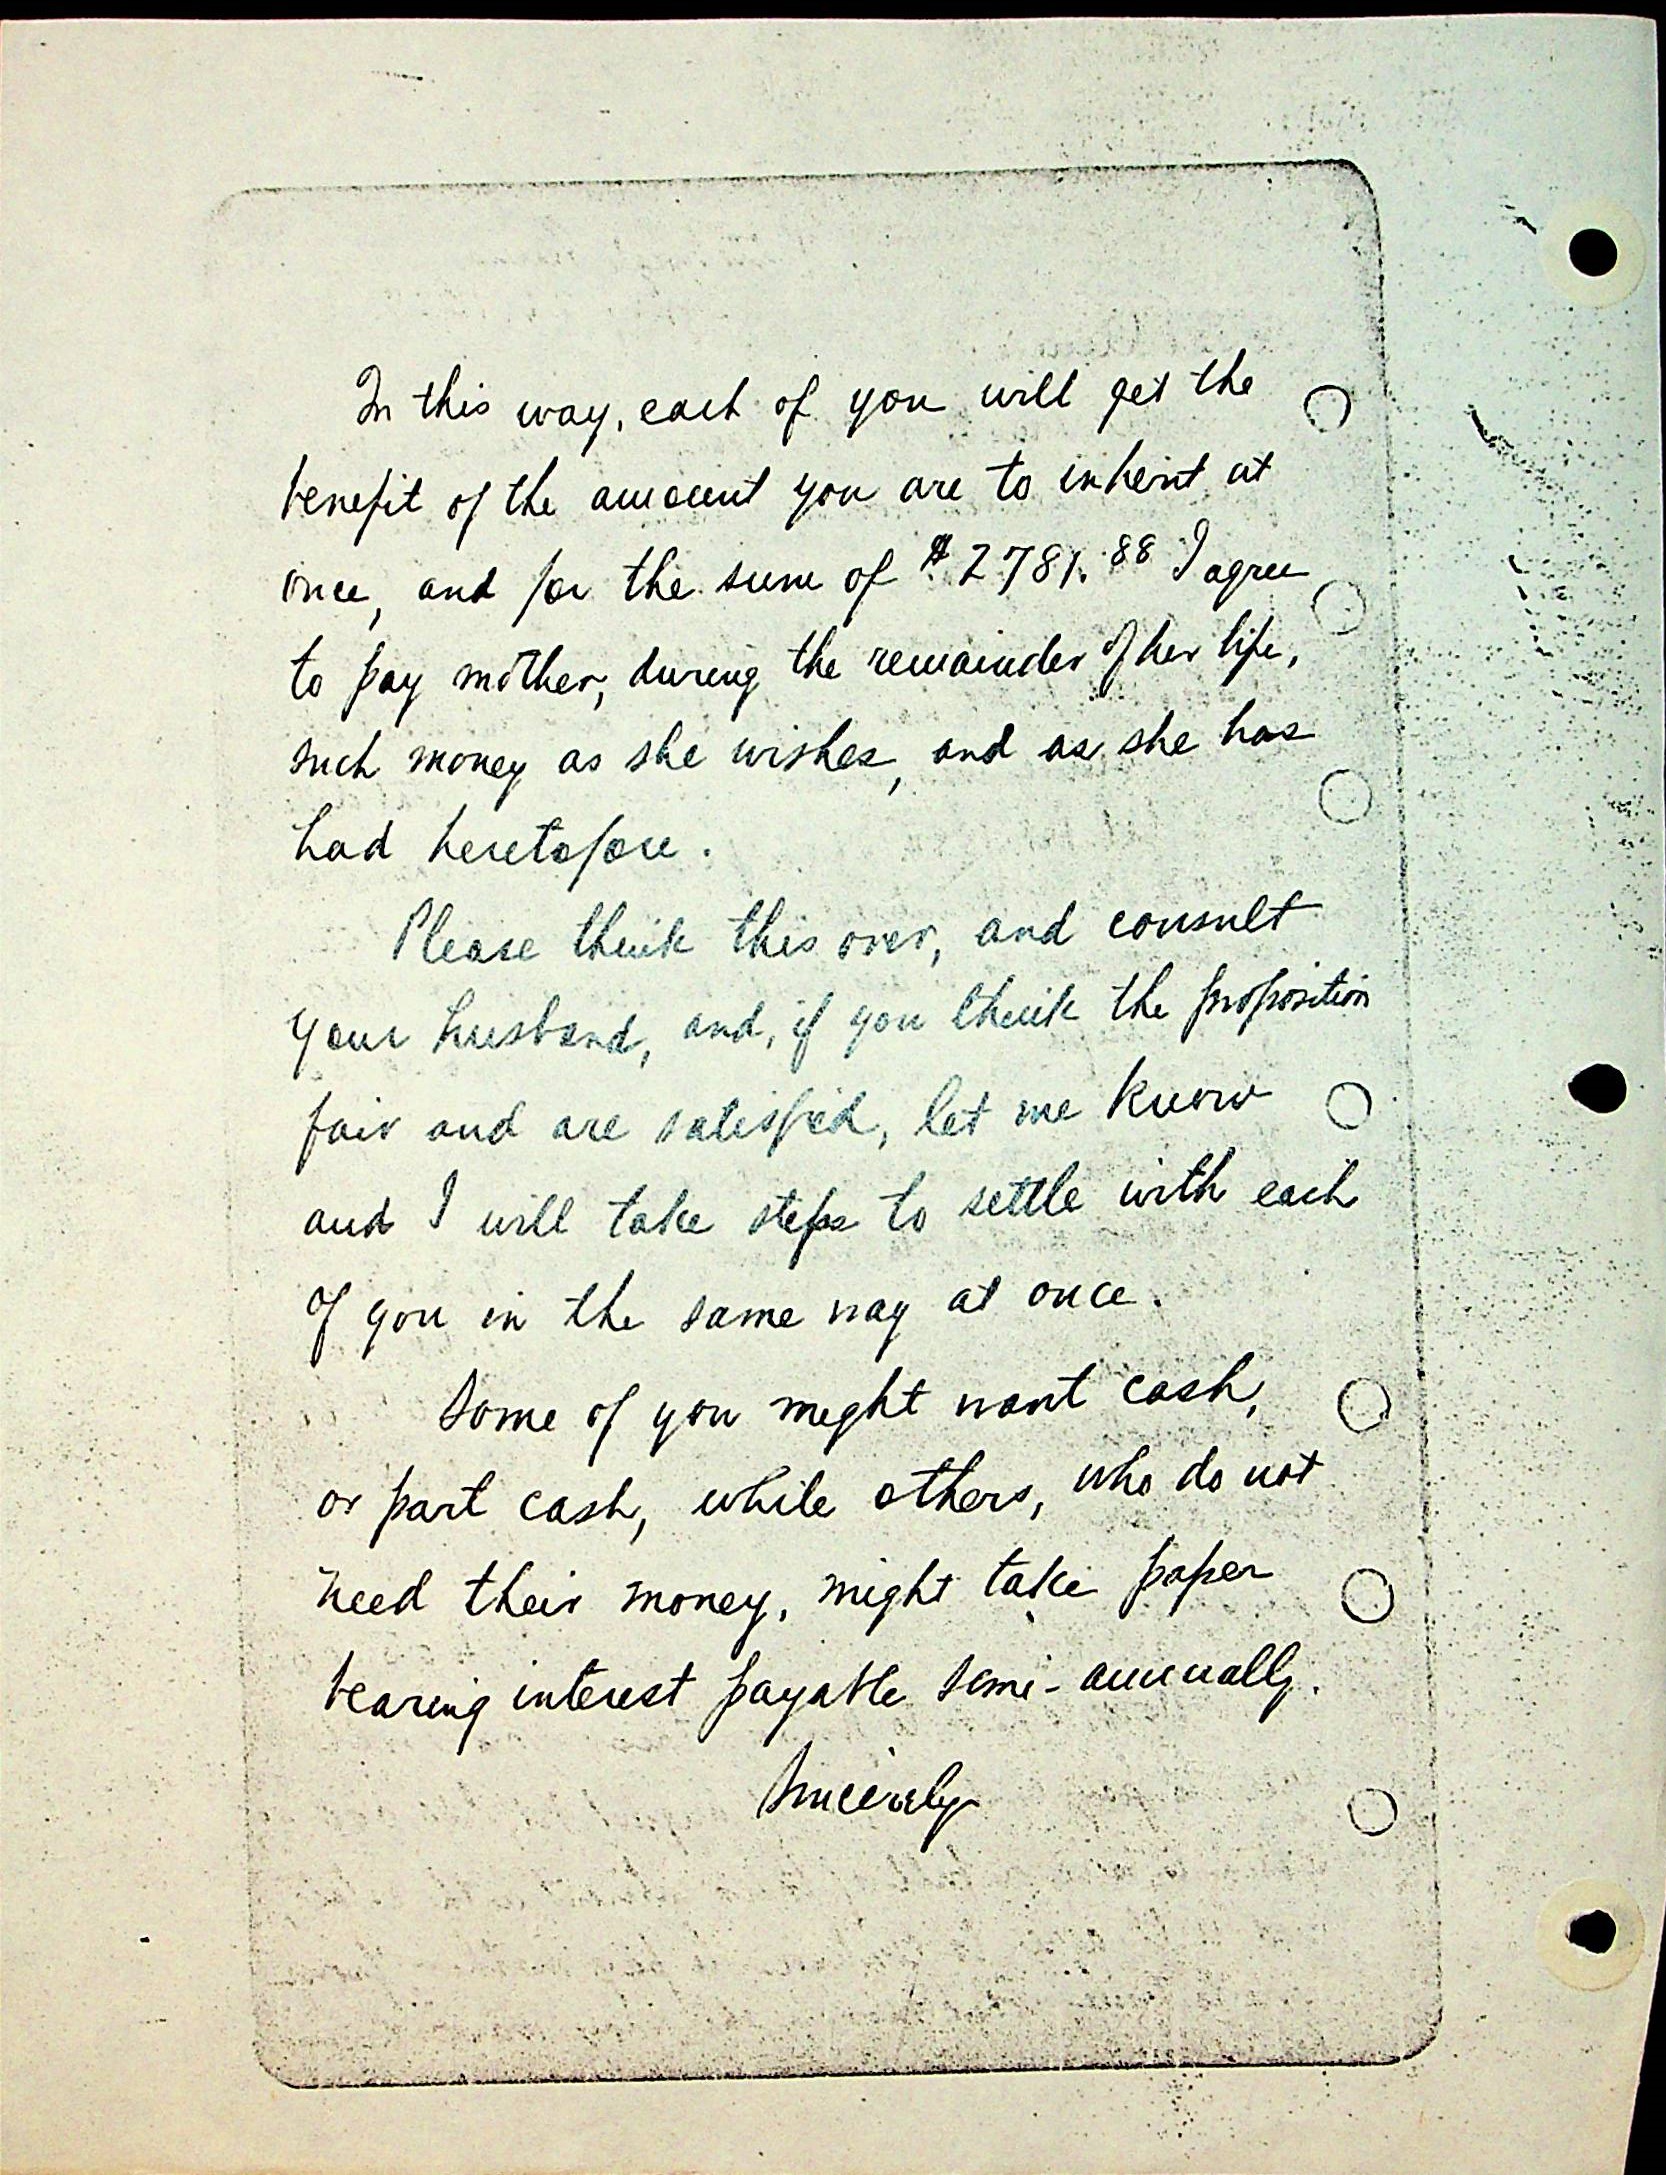 In this way, each of you will get the
benefit of the amount you are to inherit at
once, and for the sum of $2781.88 I agree
to pay mother, during the remainder of her life,
such money as she wishes, and as she has
had heretofore.
Please think this over, and consult
your husband, and, if you think the proposition
fair and are satisfied, let me know
and I will take steps to settle with each
of you in the same way at once.
Some of you might want cash,
or part cash, while others, who do not
need their money, might take paper
bearing interest payable semi-annually.
Sincerely